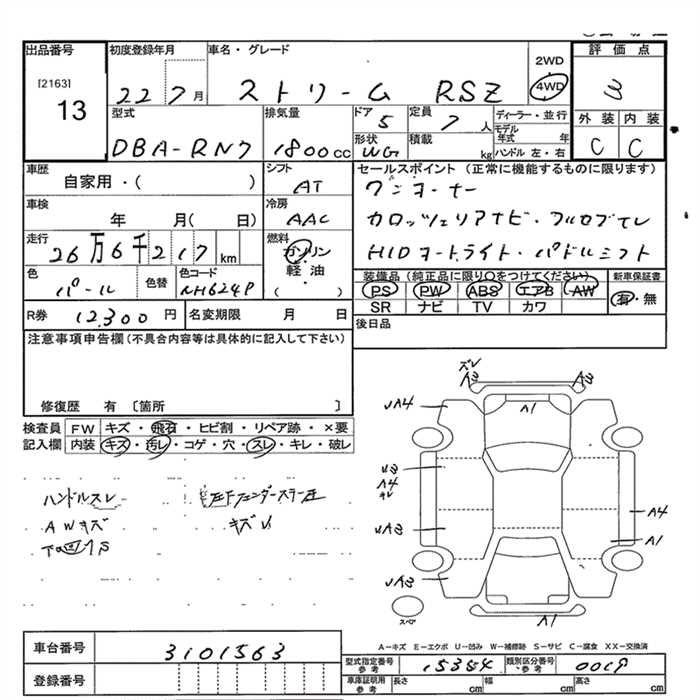 出品番号
[2163]
13
初度登録年月
22 7月
車名・グレード
ストリーム RSZ
2WD
4WD
評価点
3
型式
DBA-RN7
排気量
1800cc
ドア
5
定員
7人
ディーラー・並行
モデル年式 年
形状
WG
積載
kg
ハンドル 左・右
外装 内装
C C
車歴
自家用・( )
シフト
AT
セールスポイント (正常に機能するものに限ります)
ワンオーナー
カロッツェリアナビ・フルセグTV
HIDヘッドライト・パドルシフト
車検
年 月( 日)
冷房
AAC
走行
26万6千217km
燃料
ガソリン・軽油・( )
色
パール
色替
色コード
NH624P
装備品 (純正品に限り○をつけてください)
PS PW ABS エアB AW
SR ナビ TV カワ
新車保証書
有・無
R券 12,300円
名変期限 月 日
後日品
注意事項申告欄 (不具合内容等は具体的に記入して下さい)
修復歴 有 〔箇所 〕
検査員記入欄
FW キズ・飛石・ヒビ割・リペア跡・×要
内装 キズ・汚レ・コゲ・穴・スレ・キレ・破レ
ハンドルスレ
AWキズ
キズU
ズレ
A3 A3
UA4
A1
U3
A4
キレ
UA3
UA3
A4
A1
スペア
A-キズ E-エクボ U-凹み W-補修跡 S-サビ C-腐食 XX-交換済
車台番号 3101563
登録番号
型式指定番号 参考 15384
類別区分番号 参考 0019
車庫証明用 参考 長さ cm 幅 cm 高さ cm